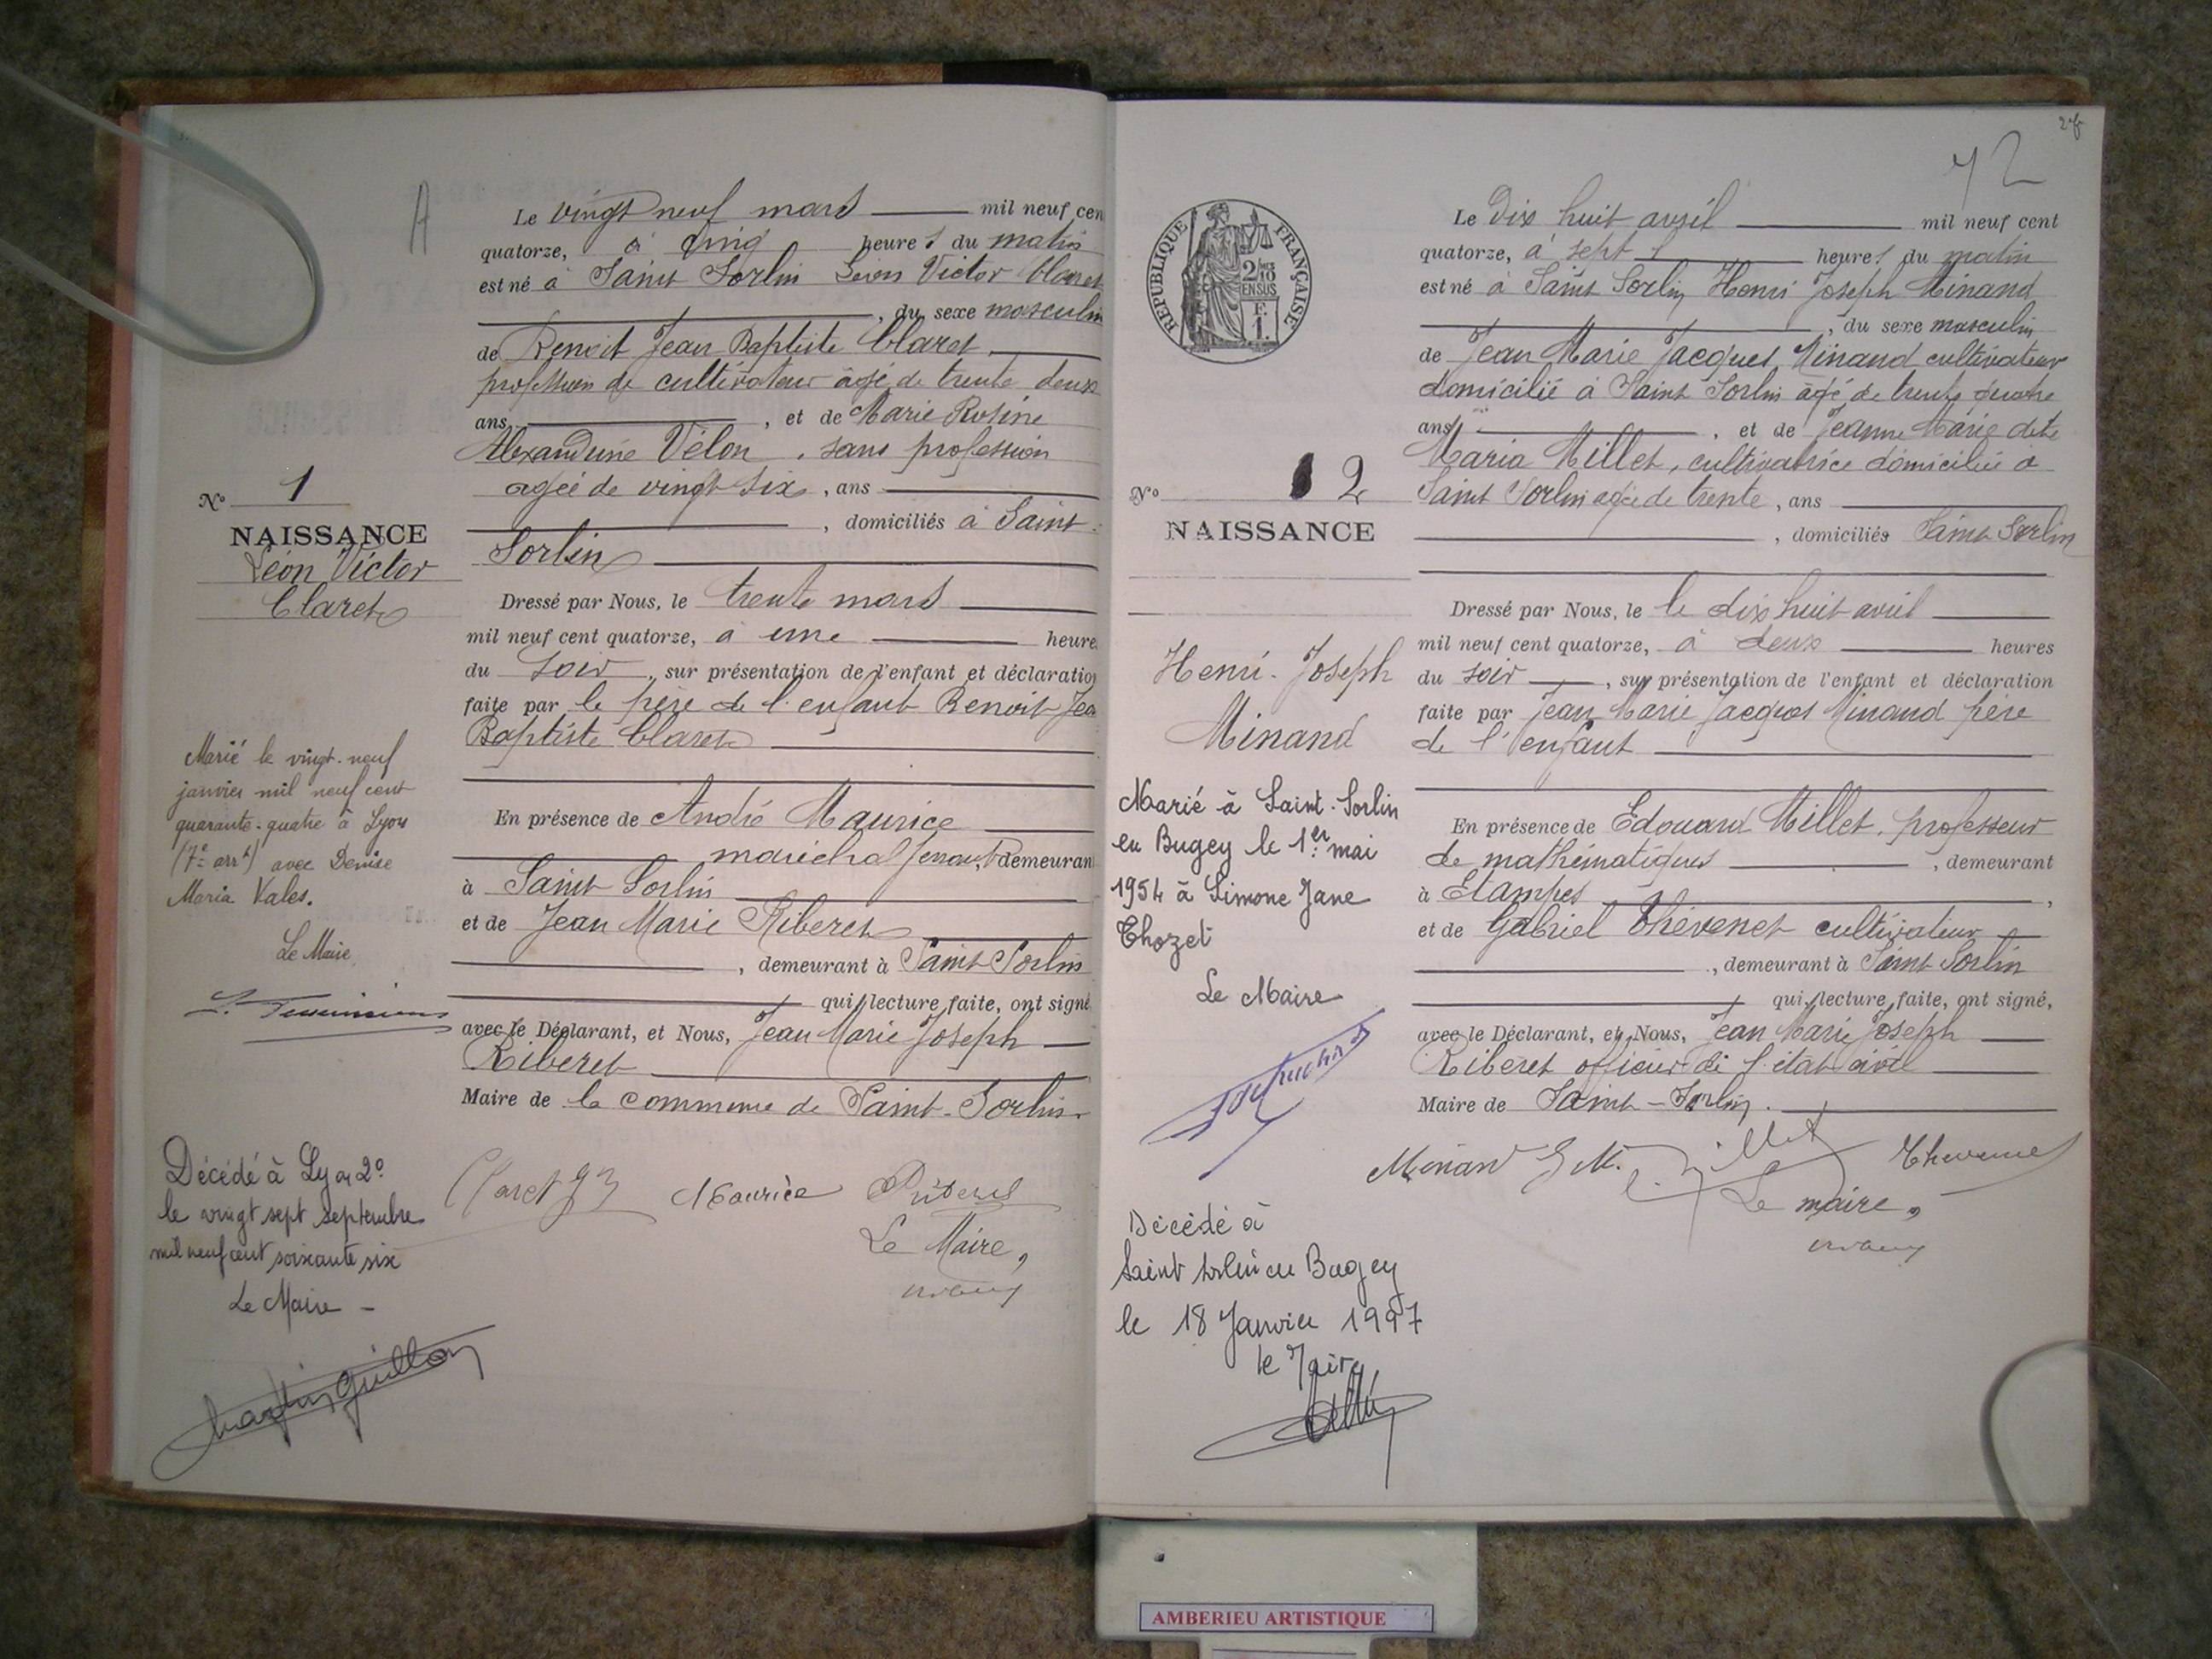 Le vingt neuf mars mil neuf cen
quatorze, à cinq heures du matin
est né à Saint Sorlin Léon Victor Claret
, du sexe masculin
de Benoit Jean Baptiste Claret
profession de cultivateur âgé de trente deux
ans, et de Marie Rosine
Alexandrine Vélon, sans profession
agée de vingt six, ans
, domiciliés à Saint-
Sorlin
Dressé par Nous, le trente mars
mil neuf cent quatorze, à une heure
du soir, sur présentation de l'enfant et déclaration
faite par le père de l'enfant Benoit Jea
Baptiste Claret
En présence de André Maurice
maréchal ferrant, demeurant
à Saint Sorlin
et de Jean Marie Riberet
, demeurant à Saint Sorlin
qui, lecture faite, ont signé
avec le Déclarant, et Nous, Jean Marie Joseph
Riberet
Maire de la commune de Saint-Sorlin.
Claret Maurice Riberet
Le Maire,
No 1
NAISSANCE
Léon Victor
Claret
Marié le vingt-neuf
janvier mil neuf cent
quarante-quatre à Lyon
(7e arrt) avec Denise
Maria Vales.
Le Maire
Décédé à Lyon 2e
le vingt sept septembre
mil neuf cent soixante six
Le Maire -
72
REPUBLIQUE FRANÇAISE
2/10
EN SUS
F.
1.
Le Dix huit avril mil neuf cent
quatorze, à sept heures du matin
est né à Saint Sorlin Henri Joseph Minand
, du sexe masculin
de Jean Marie Jacques Minand, cultivateur
domicilié à Saint Sorlin âgé de trente quatre
ans, et de Jeanne Marie dite
Maria Millet, cultivatrice domiciliée à
Saint Sorlin agée de trente, ans
, domiciliés Saint Sorlin
Dressé par Nous, le le dix huit avril
mil neuf cent quatorze, à deux heures
du soir, sur présentation de l'enfant et déclaration
faite par Jean Marie Jacques Minand père
de l'enfant
En présence de Edouard Millet, professeur
de mathématiques, demeurant
à Etampes,
et de Gabriel Thévenet cultivateur
, demeurant à Saint Sorlin
qui, lecture faite, ont signé,
avec le Déclarant, et Nous, Jean Marie Joseph
Riberet officier de l'état civil
Maire de Saint-Sorlin.
Minand J M. Millet Thevenet
Le maire,
No 2
NAISSANCE
Henri-Joseph
Minand
Marié à Saint-Sorlin
en Bugey le 1er mai
1954 à Simone Jane
Chozet
Le Maire
Décédé à
Saint Sorlin en Bugey
le 18 Janvier 1997
le Maire
AMBERIEU ARTISTIQUE